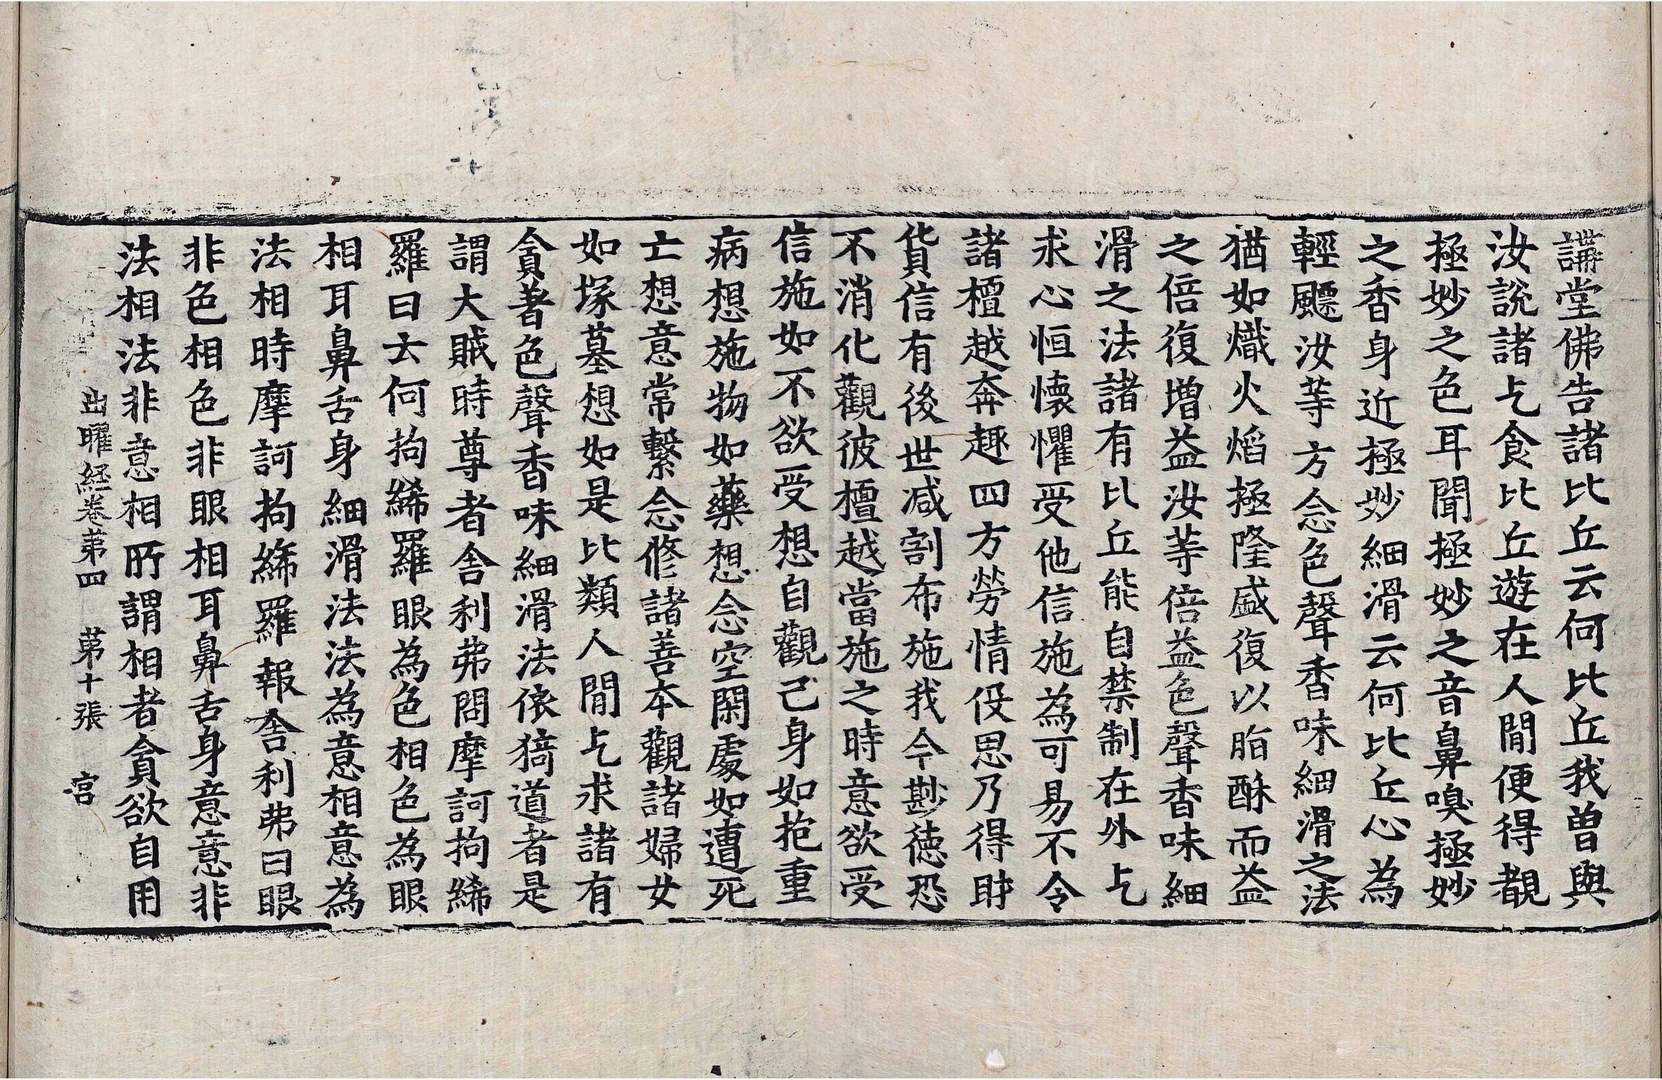 講堂佛告諸比丘云何比丘我曾與
汝說諸乞食比丘遊在人間便得覩
極妙之色耳聞極妙之音鼻嗅極妙
之香身近極妙細滑云何比丘心為
輕飄汝等方念色聲香味細滑之法
猶如熾火焰極隆盛復以脂酥而益
之倍復增益汝等倍益色聲香味細
滑之法諸有比丘能自禁制在外乞
求心恒懷懼受他信施為可易不令
諸檀越奔趣四方勞情伇思乃得財
貨信有後世減割布施我今尠德恐
不消化觀彼檀越當施之時意欲受
信施如不欲受想自觀己身如抱重
病想施物如藥想念空閑處如遭死
亡想意常繫念修諸善本觀諸婦女
如塚墓想如是比類人間乞求諸有
貪著色聲香味細滑法依猗道者是
謂大賊時尊者舍利弗問摩訶拘絺
羅曰云何拘絺羅眼為色相色為眼
相耳鼻舌身細滑法法為意相意為
法相時摩訶拘絺羅報舍利弗曰眼
非色相色非眼相耳鼻舌身意意非
法相法非意相所謂相者貪欲自用
出曜経卷苐四 苐十張 宮